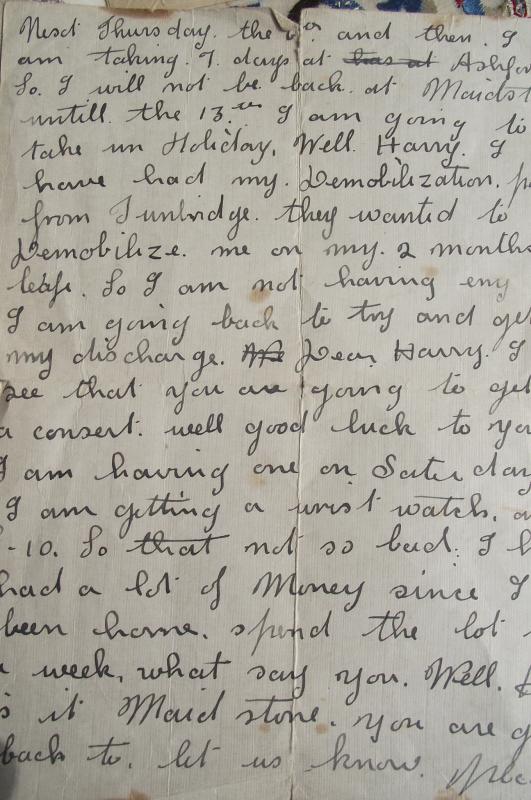 Next Thursday. the 6th and then. I
am taking. 7. days at has at Ashfor
So. I will not be back. at Maidst
untill the 13.th I am going to
take um Holiday. Well. Harry. I
have had my. Demobilization. p
from Tunbridge. they wanted to
Demobilize. me on my. 2 months
leafe. So I am not having eny
I am going back to try and get
my discharge. Dear Harry. I
see that you are going to get
a consert. well good luck to yo
I am having one on Saterday
I am getting a wrist watch. a
-10. So that not so bad. I h
had a lot of Money since I
been home. spend the lot
a week, what say you. Well.
s it Maid stone. you are g
back to. let us know.